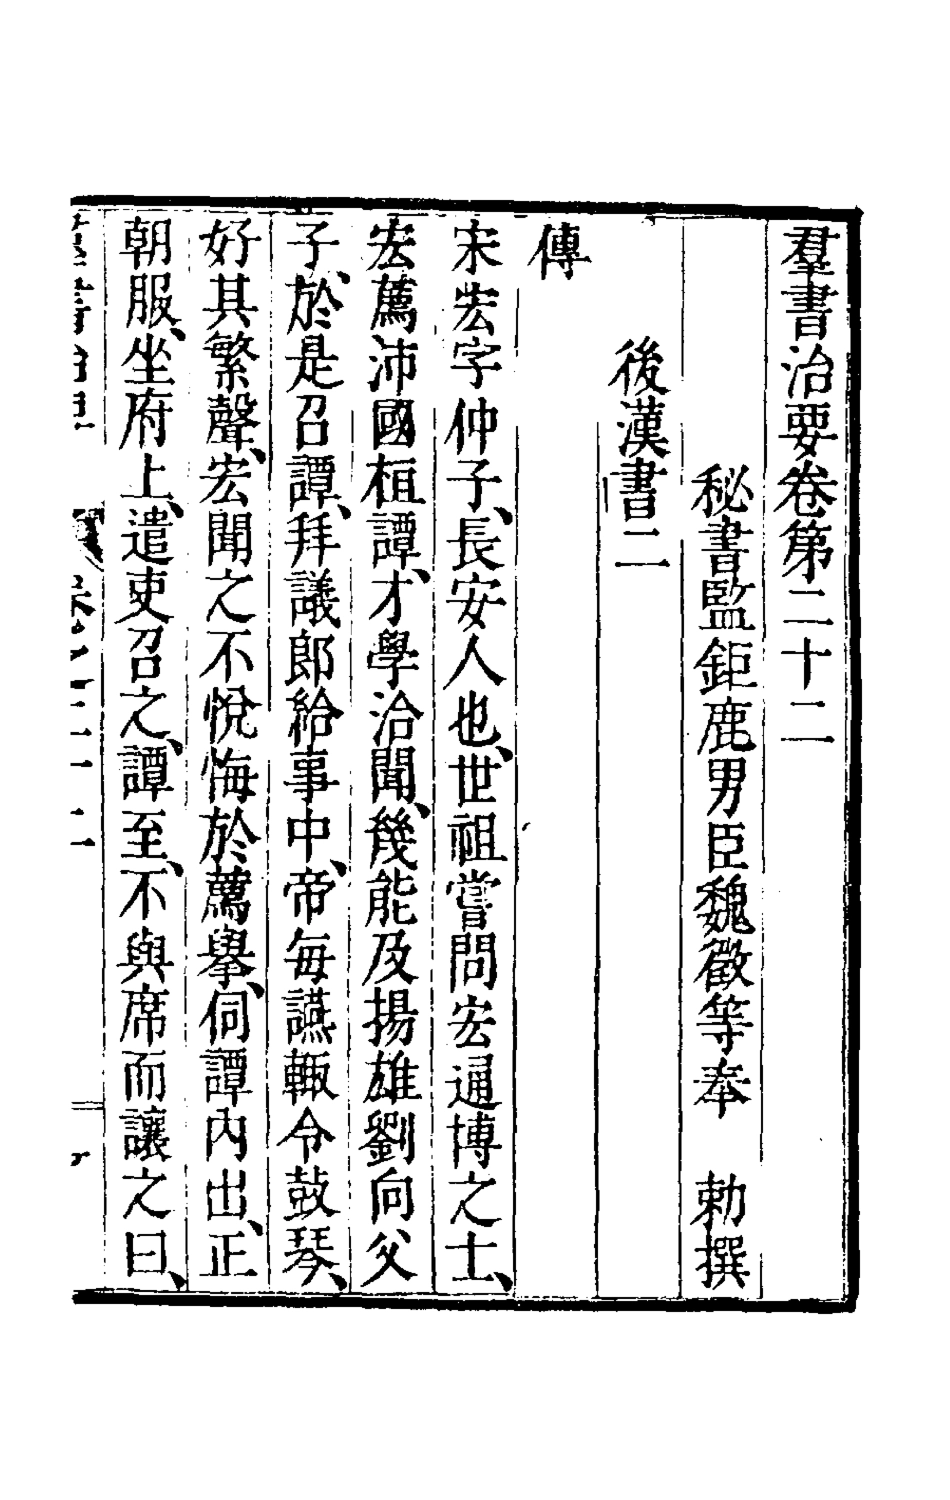 羣書治要卷第二十二
秘書監鉅鹿男臣魏徵等奉　勅撰
後漢書二
傳
宋宏字仲子、長安人也、世祖嘗問宏通博之士、
宏薦沛國桓譚、才學洽聞、幾能及揚雄劉向父
子、於是召譚、拜議郎給事中、帝每讌輙令鼓琴、
好其繁聲、宏聞之不悅悔於薦舉、伺譚內出、正
朝服、坐府上、遣吏召之、譚至、不與席而讓之曰、